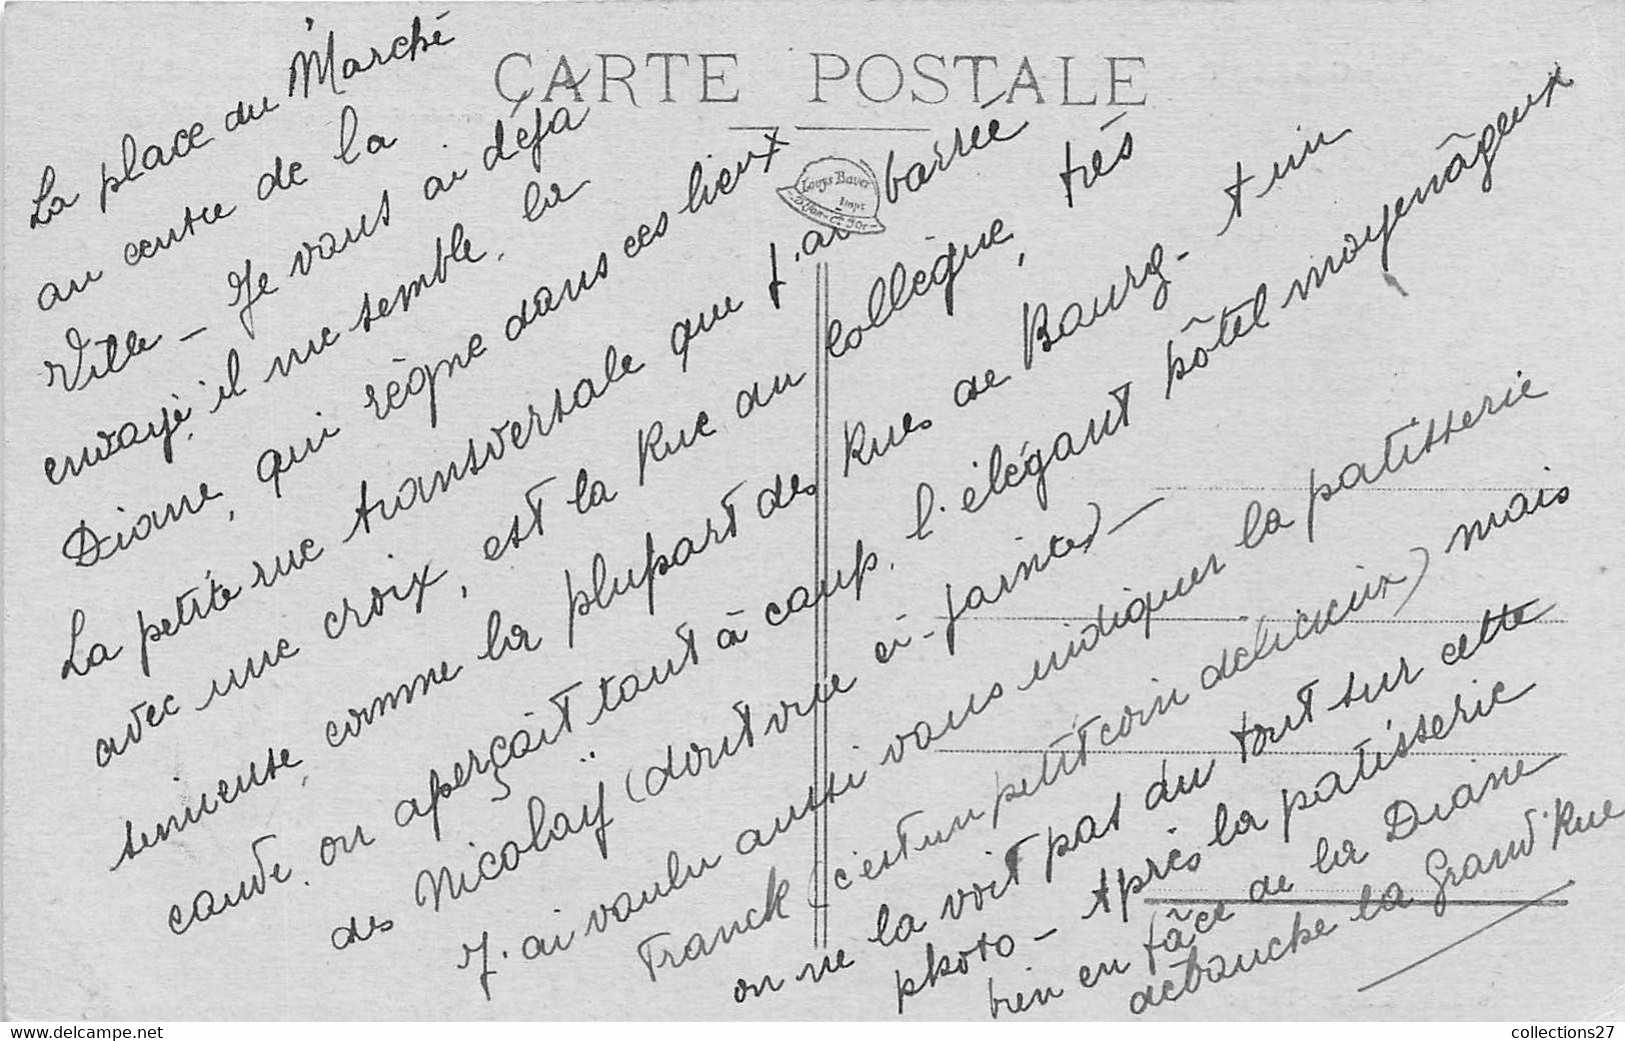 CARTE POSTALE
Louys Bauer
Impr
Dijon - C. d'Or -
La place du Marché
au centre de la
Ville - Je vous ai déjà
envoyé, il me semble, la
Diane, qui règne dans ces lieux
La petite rue transversale que j'ai barrée
avec une croix, est la Rue du Collègue, très
sinueuse, comme la plupart des Rues de Bourg. -
coude. on aperçoit tout à coup, l'élégant hôtel moyenâgeux
des Nicolaÿ (dont vue ci-jointe) -
J'ai voulu aussi vous indiquer la patisserie
Franck (c'est un petit coin délicieux) mais
on ne la voit pas du tout sur cette
photo - Après la patisserie
bien en fâce de la Diane
débouche la Grand'Rue
collections27